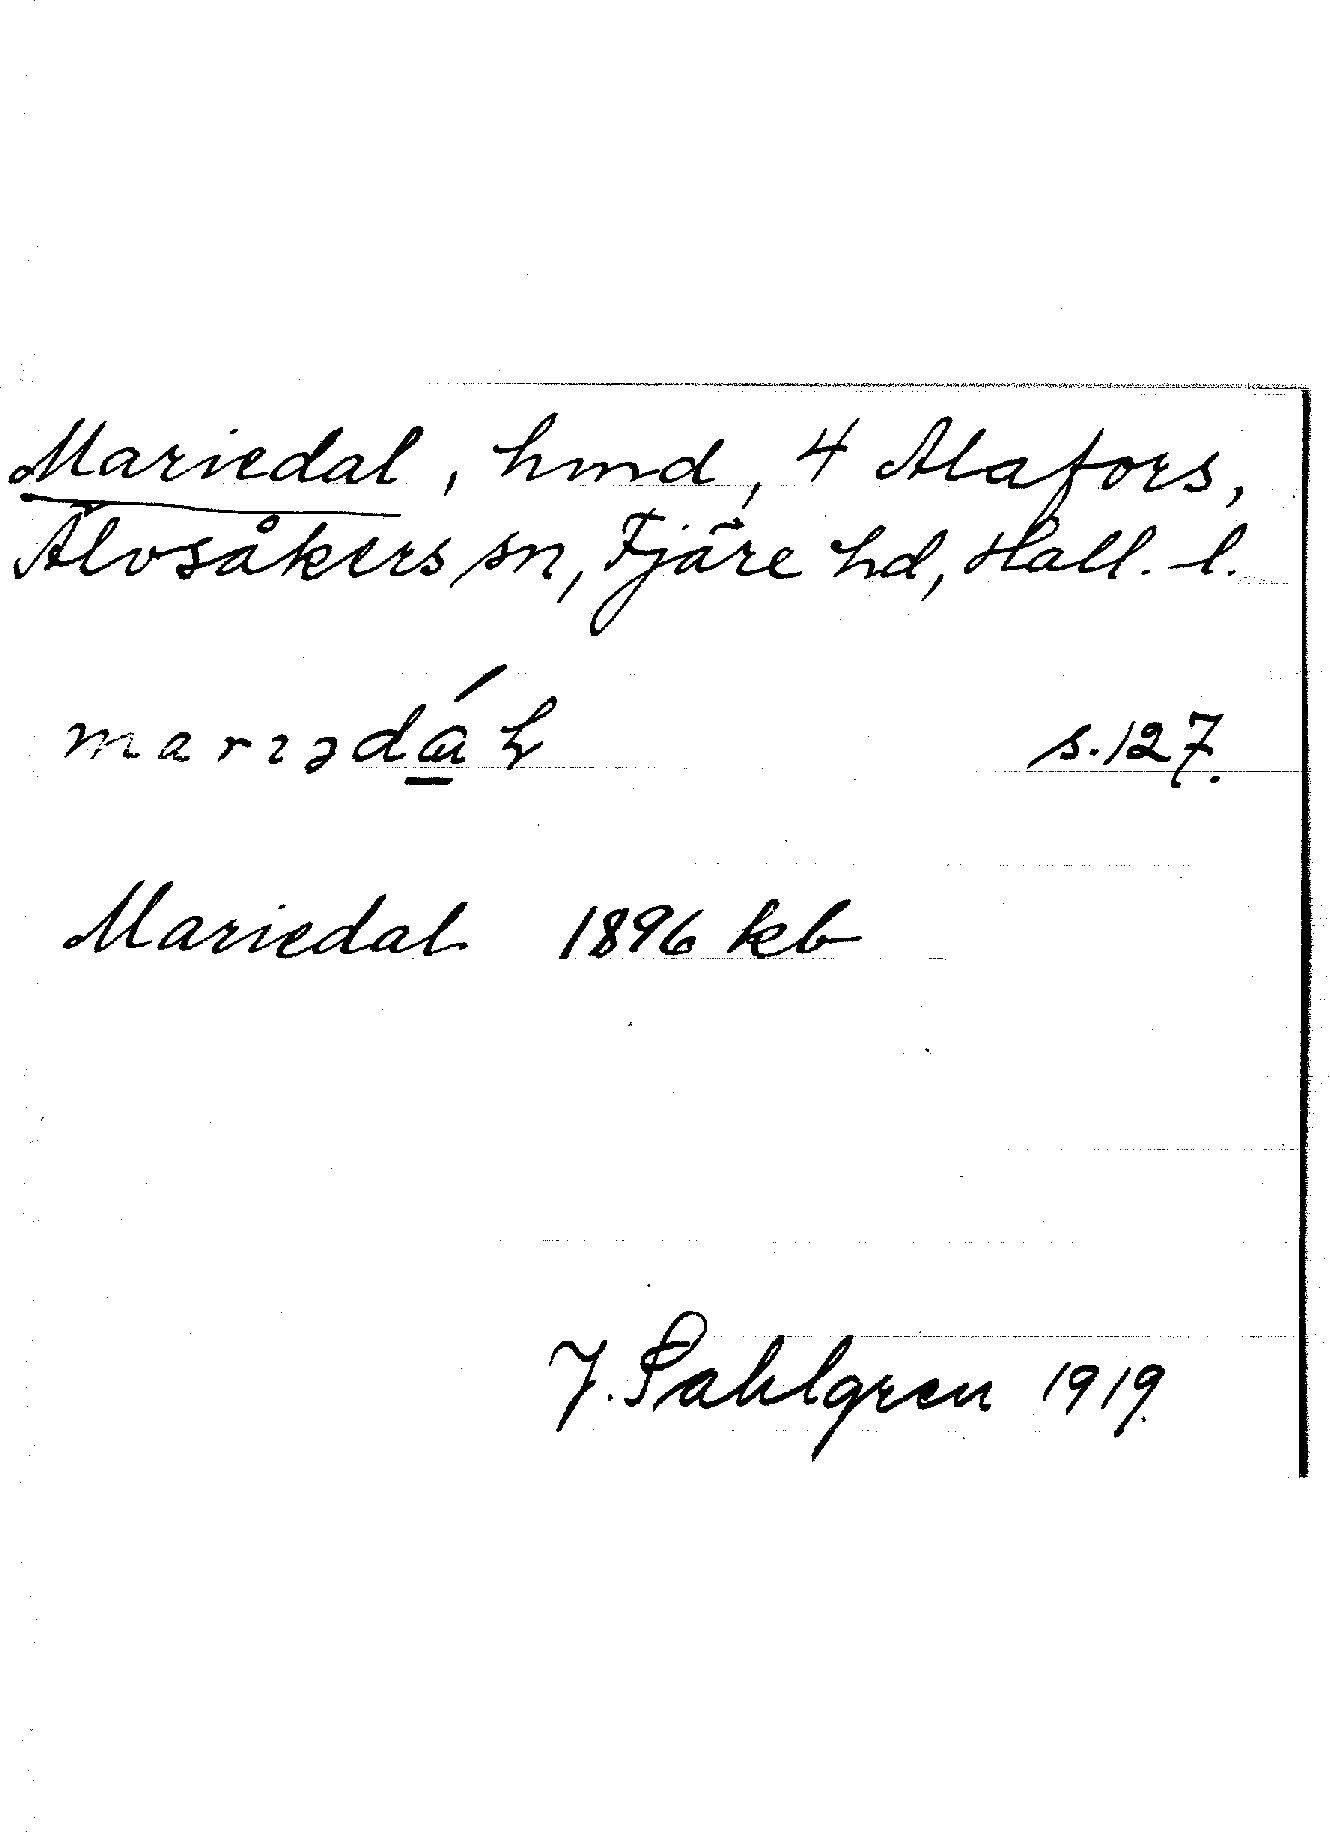 Mariedal, hmd, 4 Alafors,
Älvsåkers sn, Fjäre hd, Hall. l.
marıədɑ́l s. 127.
Mariedal 1896 kb
J. Sahlgren 1919.